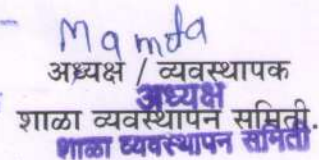 Mamta
अध्यक्ष / व्यवस्थापक
अध्यक्ष
शाळा व्यवस्थापन समिती.
शाळा व्यवस्थापन समिती